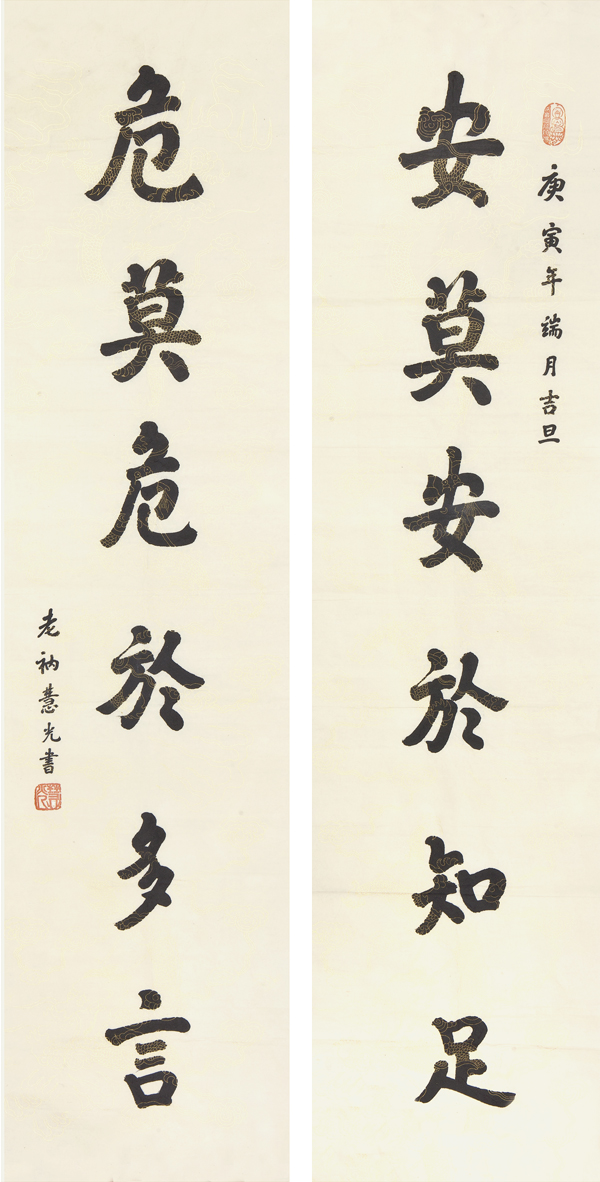 庚寅年端月吉旦
安莫安於知足
危莫危於多言
老衲慧光書